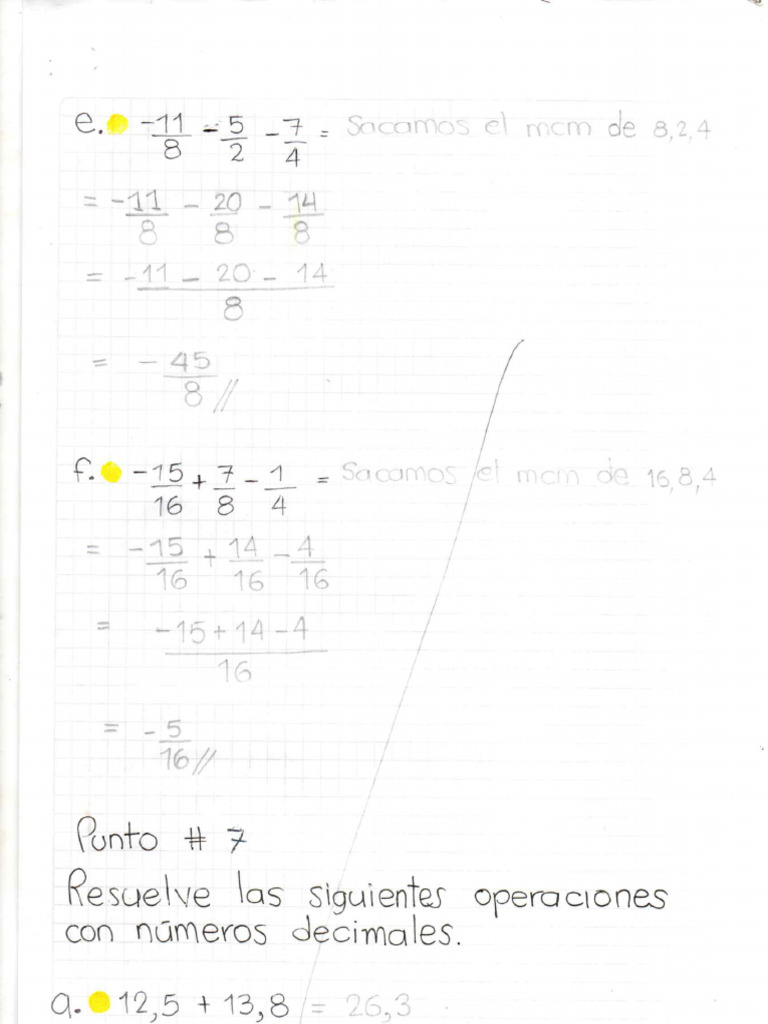 e. -11/8 - 5/2 - 7/4 = Sacamos el mcm de 8,2,4
= -11/8 - 20/8 - 14/8
= -11 - 20 - 14 / 8
= - 45/8 //
f. -15/16 + 7/8 - 1/4 = Sacamos el mcm de 16,8,4
= -15/16 + 14/16 - 4/16
= -15 + 14 - 4 / 16
= - 5/16 //
Punto # 7
Resuelve las siguientes operaciones
con números decimales.
a. 12,5 + 13,8 = 26,3